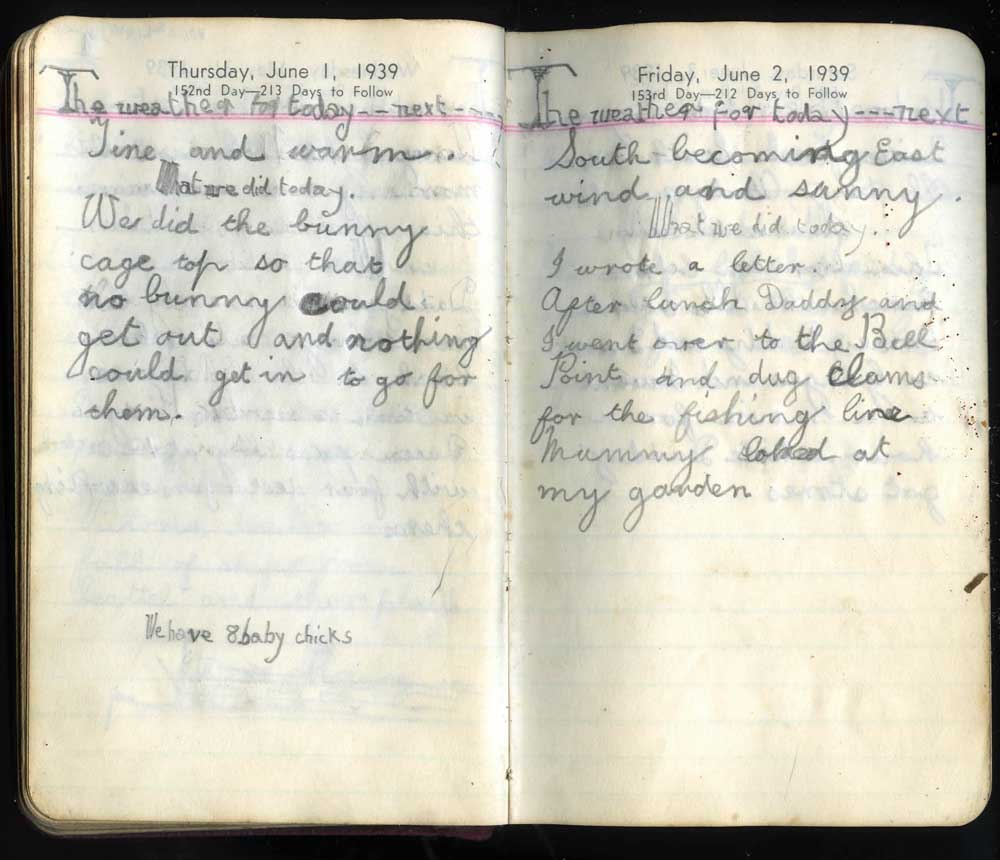 Thursday, June 1, 1939
152nd Day—213 Days to Follow
The weather for today---next---
Fine and warm.
What we did today.
We did the bunny
cage top so that
no bunny could
get out and nothing
could get in to go for
them.
We have 8 baby chicks
Friday, June 2, 1939
153rd Day—212 Days to Follow
The weather for today---next
South becoming East
wind and sunny.
What we did today.
I wrote a letter.
After lunch Daddy and
I went over to the Bell
Point and dug clams
for the fishing line
Mummy looked at
my garden